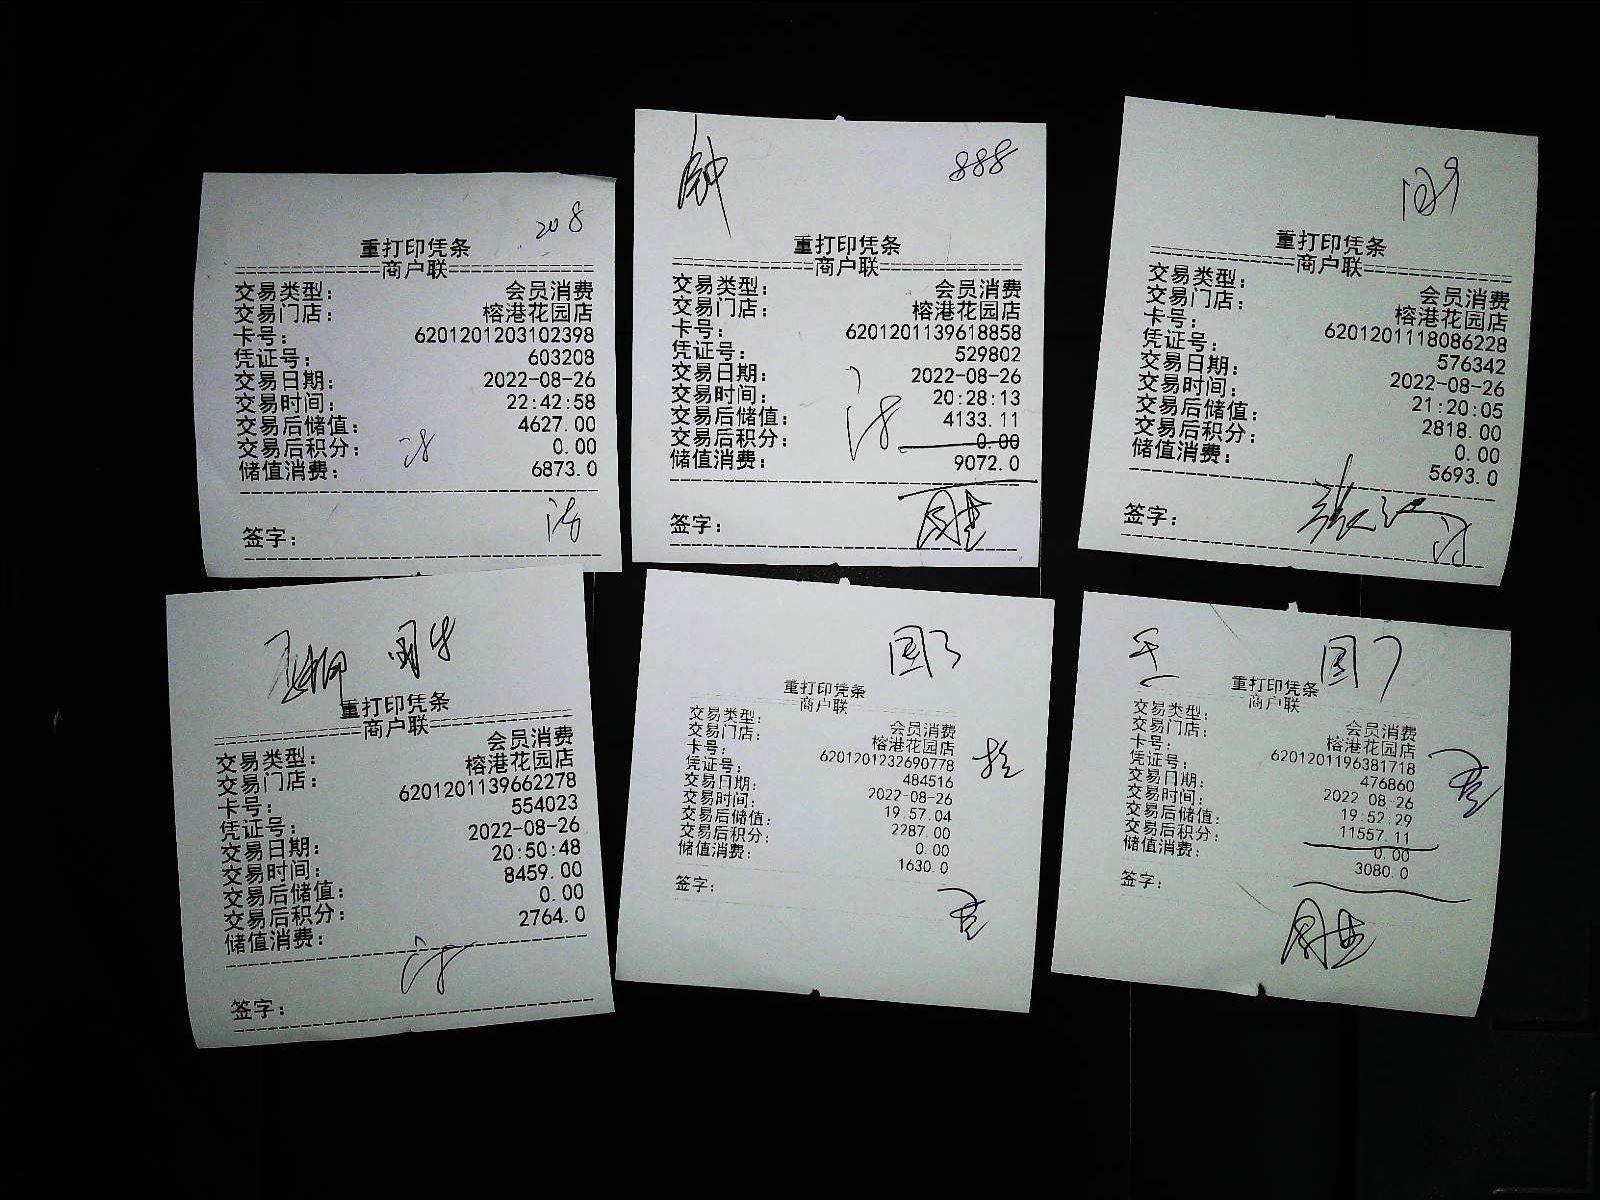 208
重打印凭条
商户联
交易类型: 会员消费
交易门店: 榕港花园店
卡号: 6201201203102398
凭证号: 603208
交易日期: 2022-08-26
交易时间: 22:42:58
交易后储值: 4627.00
交易后积分: 0.00
储值消费: 6873.0
签字:
888
重打印凭条
商户联
交易类型: 会员消费
交易门店: 榕港花园店
卡号: 6201201139618858
凭证号: 529802
交易日期: 2022-08-26
交易时间: 20:28:13
交易后储值: 4133.11
交易后积分: 0.00
储值消费: 9072.0
签字:
重打印凭条
商户联
交易类型: 会员消费
交易门店: 榕港花园店
卡号: 6201201118086228
凭证号: 576342
交易日期: 2022-08-26
交易时间: 21:20:05
交易后储值: 2818.00
交易后积分: 0.00
储值消费: 5693.0
签字:
重打印凭条
商户联
交易类型: 会员消费
交易门店: 榕港花园店
卡号: 6201201139662278
凭证号: 554023
交易日期: 2022-08-26
交易时间: 20:50:48
交易后储值: 8459.00
交易后积分: 0.00
储值消费: 2764.0
签字:
国3
重打印凭条
商户联
交易类型: 会员消费
交易门店: 榕港花园店
卡号: 6201201232690778
凭证号: 484516
交易日期: 2022-08-26
交易时间: 19:57:04
交易后储值: 2287.00
交易后积分: 0.00
储值消费: 1630.0
签字:
国7
重打印凭条
商户联
交易类型: 会员消费
交易门店: 榕港花园店
卡号: 6201201196381718
凭证号: 476860
交易日期: 2022-08-26
交易时间: 19:52:29
交易后储值: 11557.11
交易后积分: 0.00
储值消费: 3080.0
签字: